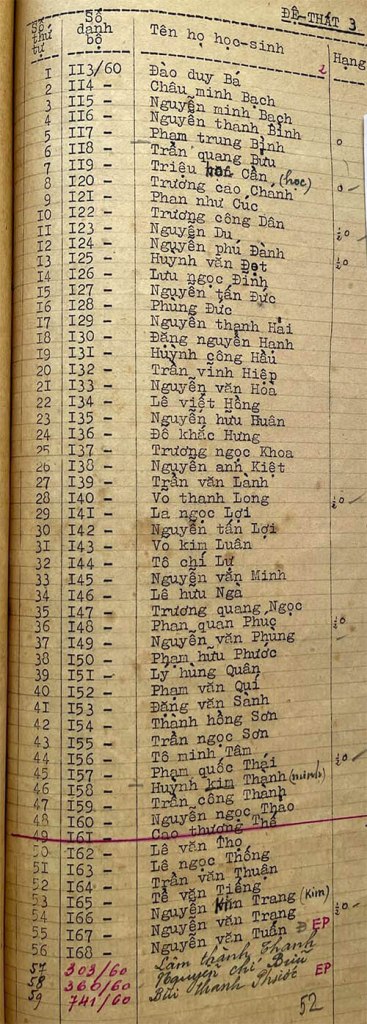 ĐỆ-THẤT 3
Số thứ tự Số danh bộ Tên họ học-sinh Hạng
1 113/60 Đào duy Bá
2 114 - Châu minh Bạch
3 115 - Nguyễn minh Bạch
4 116 - Nguyễn thanh Bình
5 117 - Phạm trung Bình o
6 118 - Trần quang Bửu
7 119 - Triệu Cẩn (học)
8 120 - Trương cao Chánh o -
9 121 - Phan như Cúc
10 122 - Trương công Dân
11 123 - Nguyễn Du ½o
12 124 - Nguyễn phú Đành
13 125 - Huỳnh văn Đẹt ½o
14 126 - Lưu ngọc Định
15 127 - Nguyễn tấn Đức
16 128 - Phùng Đức
17 129 - Nguyễn thanh Hải
18 130 - Đặng nguyên Hạnh
19 131 - Huỳnh công Hầu
20 132 - Trần vĩnh Hiệp
21 133 - Nguyễn văn Hoà
22 134 - Lê viết Hồng
23 135 - Nguyễn hữu Huân
24 136 - Đỗ khắc Hưng
25 137 - Trương ngọc Khoa
26 138 - Nguyễn anh Kiệt
27 139 - Trần văn Lành
28 140 - Võ thanh Long ½o
29 141 - La ngọc Lợi
30 142 - Nguyễn tấn Lợi
31 143 - Võ kim Luân
32 144 - Tô chí Lự
33 145 - Nguyễn văn Minh
34 146 - Lê hữu Ngà
35 147 - Trương quang Ngọc
36 148 - Phan quan Phục ½o
37 149 - Nguyễn văn Phụng
38 150 - Phạm hữu Phước
39 151 - Lý hùng Quân
40 152 - Phạm văn Quí
41 153 - Đặng văn Sành
42 154 - Thành hồng Sơn
43 155 - Trần ngọc Sơn
44 156 - Tô minh Tâm
45 157 - Phạm quốc Thái ½o
46 158 - Huỳnh kim Thạnh (minh)
47 159 - Trần công Thành
48 160 - Nguyễn ngọc Thảo
49 161 - Cao thượng Thế
50 162 - Lê văn Thọ
51 163 - Lê ngọc Thống
52 164 - Trần văn Thuận
53 165 - Tề văn Tiếng
54 166 - Nguyễn Trang (Kim) ½o
55 167 - Nguyễn văn Trạng
56 168 - Nguyễn văn Tuấn EP
57 303/60 - Lâm thành Thanh
58 360/60 - Nguyễn chí Bửu
59 741/60 - Bùi thanh Phước EP
52